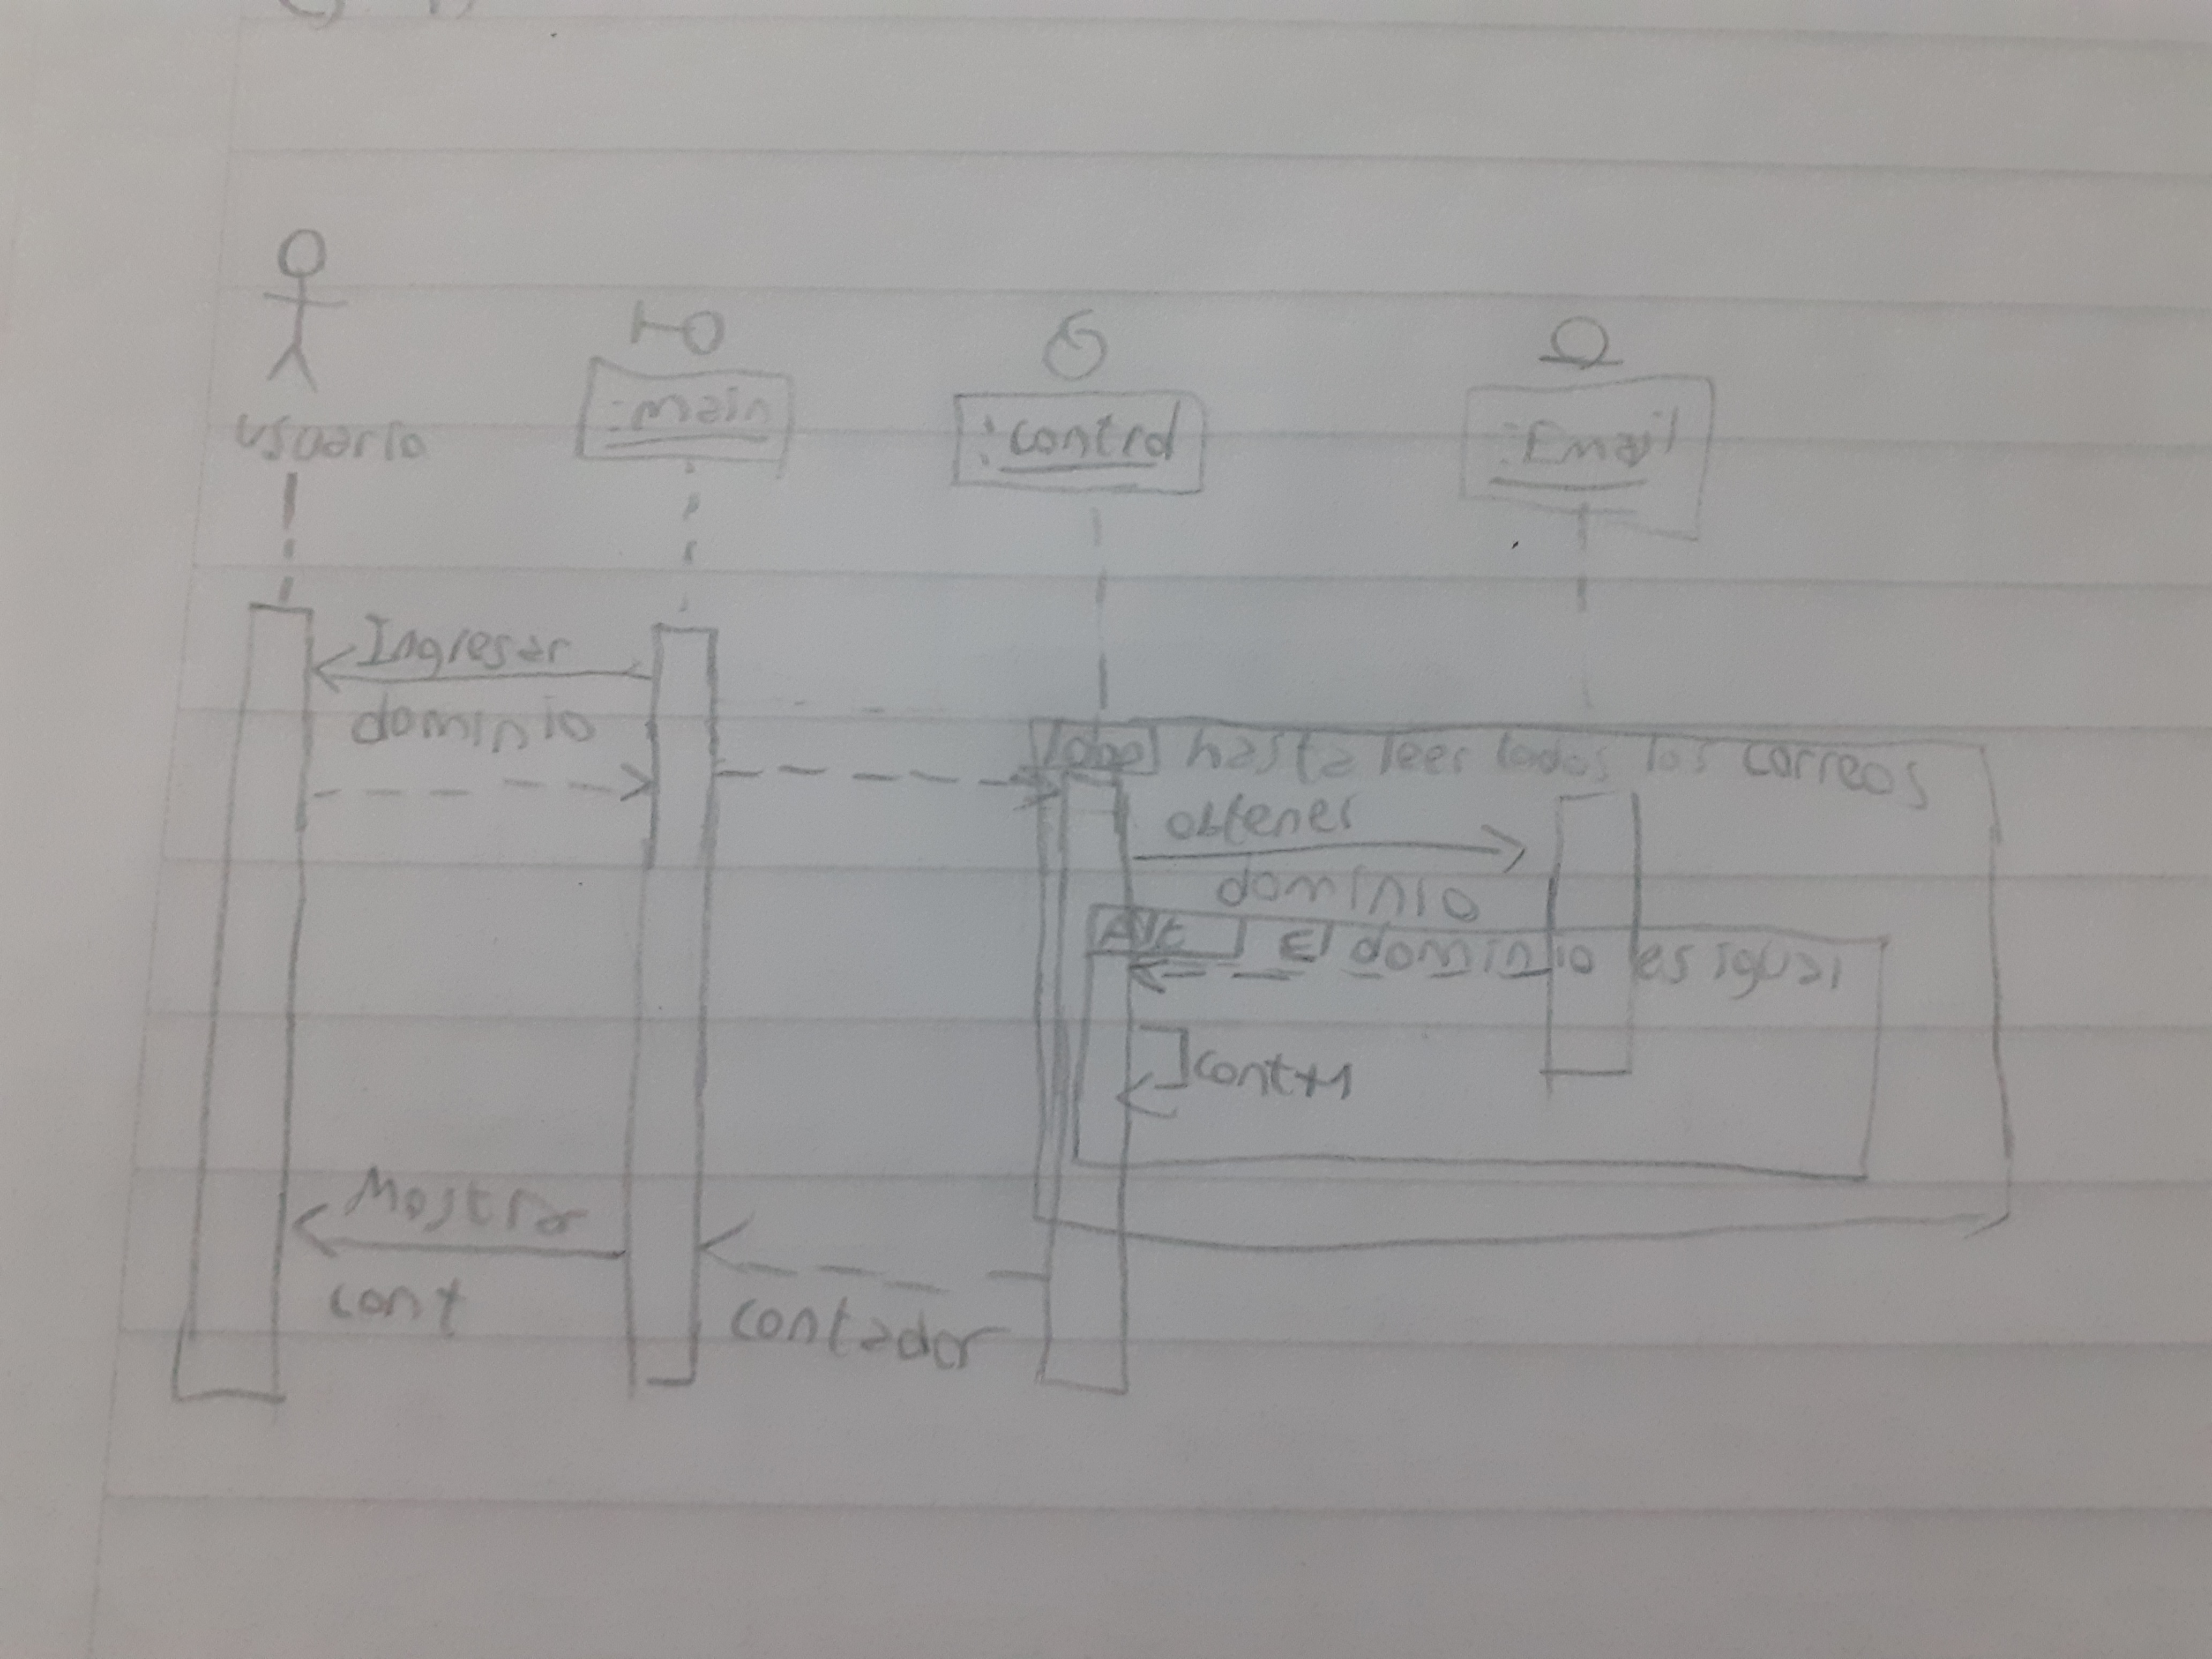 usuario
:main
:control
:Email
Ingresar
dominio
loop hasta leer todos los correos
obtener
dominio
Alt El dominio es igual
cont+1
Mostrar
cont
contador